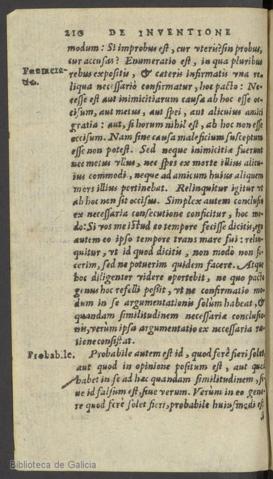 210 DE INVENTIONE
modum: Si improbus est, cur vteris? sin probus,
cur accusas? Enumeratio est, in qua pluribus
rebus expositis, & cæteris infirmatis vna re-
liqua necessariò confirmatur, hoc pacto: Ne-
cesse est aut inimicitiarum causa ab hoc esse oc-
cisum, aut metus, aut spei, aut alicuius amici
gratia: aut, si horum nihil est, ab hoc non esse
occisum. Nam sine causa maleficium susceptum
esse non potest. Sed neque inimicitiæ fuerunt
nec metus vllus, nec spes ex morte illius alicu-
ius commodi, neque ad amicum huius aliquem
mors illius pertinebat. Relinquitur igitur vt
ab hoc non sit occisus. Simplex autem conclusio
ex necessaria consecutione conficitur, hoc mo-
do: Si vos me istud eo tempore fecisse dicitis, ego
autem eo ipso tempore trans mare fui: relin-
quitur, vt id quod dicitis, non modo non fe-
cerim, sed ne potuerim quidem facere. Atque
hoc diligenter videre oportebit, ne quo pacto
genus hoc refelli possit, vt ne confirmatio mo-
dum in se argumentationis solùm habeat, &
quandam similitudinem necessariæ conclusio-
nis, verùm ipsa argumentatio ex necessaria ra-
tione consistat.
Probabile. Probabile autem est id, quod ferè fieri solet,
aut quod in opinione positum est, aut quod
habet in se ad hæc quandam similitudinem, si-
ue id falsum est, siue verum. Verùm in eo gene-
re quod ferè solet fieri, probabile huiusmodi est:
Biblioteca de Galicia